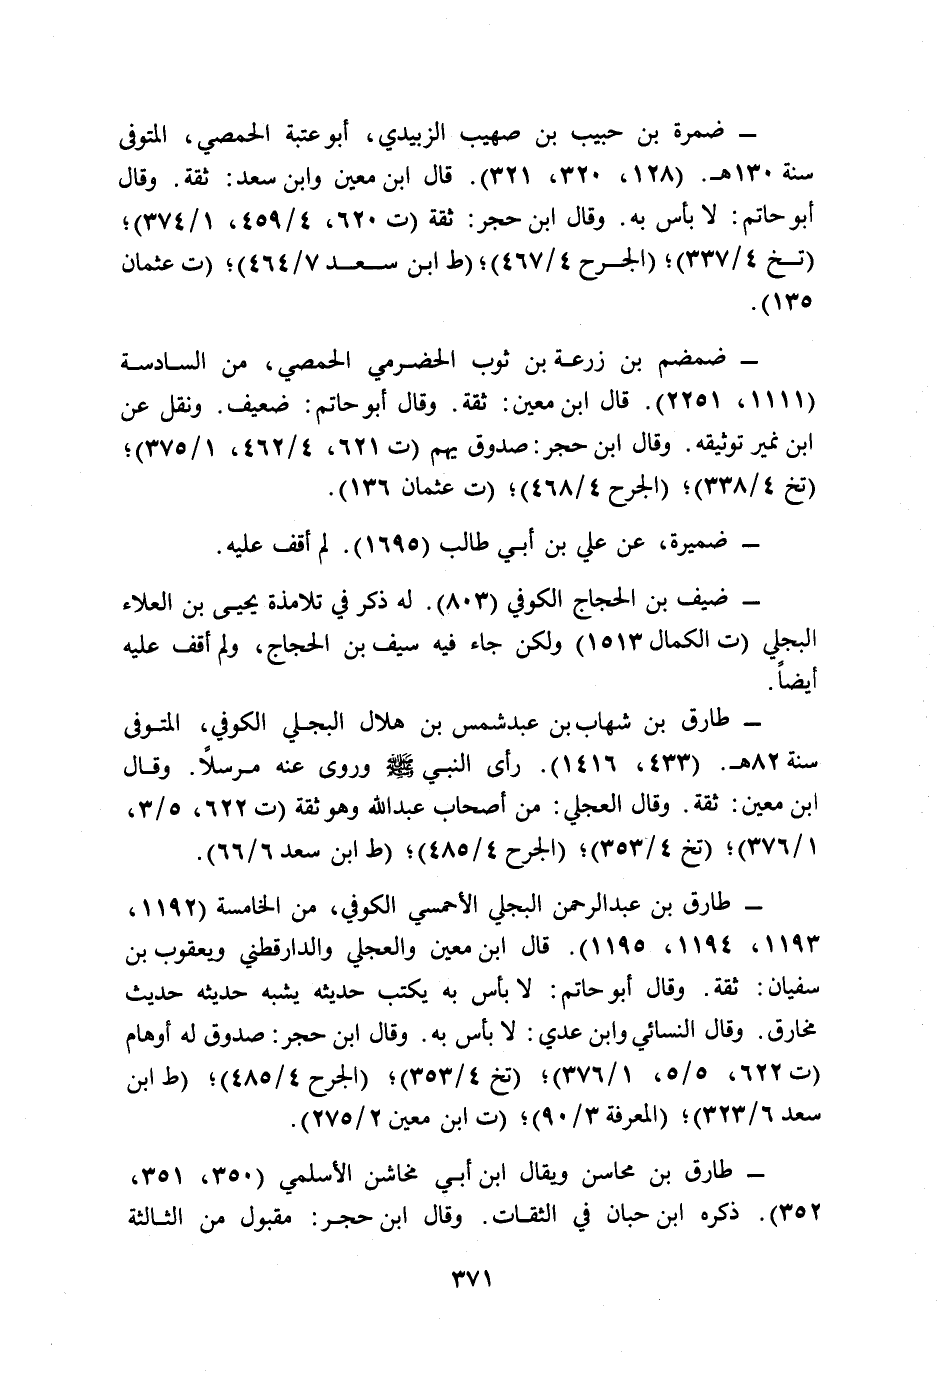 ــ ضمرة بن حبيب بن صهيب الزبيدي، أبو عتبة الحمصي، المتوفى
سنة ١٣٠هـ. (١٢٨، ٣٢٠، ٣٢١). قال ابن معين وابن سعد: ثقة. وقال
أبو حاتم: لا بأس به. وقال ابن حجر: ثقة (ت ٦٢٠، ٤٥٩/٤، ٣٧٤/١)؛
(تـخ ٣٣٧/٤)؛ (الجـرح ٤٦٧/٤)؛ (ط ابـن سـعـد ٤٦٤/٧)؛ (ت عثمان
١٣٥).
ــ ضمضم بن زرعـة بن ثوب الحضرمي الحمصي، من السـادسـة
(١١١١، ٢٢٥١). قال ابن معين: ثقة. وقال أبو حاتم: ضعيف. ونقل عن
ابن نمير توثيقه. وقال ابن حجر: صدوق يهم (ت ٦٢١، ٤٦٢/٤، ٣٧٥/١)؛
(تخ ٣٣٨/٤)؛ (الجرح ٤٦٨/٤)؛ (ت عثمان ١٣٦).
ــ ضميرة، عن علي بن أبـي طالب (١٦٩٥). لم أقف عليه.
ــ ضيف بن الحجاج الكوفي (٨٠٣). له ذكر في تلامذة يحيـى بن العلاء
البجلي (ت الكمال ١٥١٣) ولكن جاء فيه سيف بن الحجاج، ولم أقف عليه
أيضاً.
ــ طارق بن شهاب بن عبدشمس بن هلال البجـلي الكوفي، المتـوفى
سنة ٨٢هـ. (٤٣٣، ١٤١٦). رأى النبـي ﷺ وروى عنه مـرسلاً. وقـال
ابن معين: ثقة. وقال العجلي: من أصحاب عبدالله وهو ثقة (ت ٦٢٢، ٣/٥،
٣٧٦/١)؛ (تخ ٣٥٣/٤)؛ (الجرح ٤٨٥/٤)؛ (ط ابن سعد ٦٦/٦).
ــ طارق بن عبدالرحمن البجلي الأحمسي الكوفي، من الخامسة (١١٩٢،
١١٩٣، ١١٩٤، ١١٩٥). قال ابن معين والعجلي والدارقطني ويعقوب بن
سفيان: ثقة. وقال أبو حاتم: لا بأس به يكتب حديثه يشبه حديثه حديث
مخارق. وقال النسائي وابن عدي: لا بأس به. وقال ابن حجر: صدوق له أوهام
(ت ٦٢٢، ٥/٥، ٣٧٦/١)؛ (تخ ٣٥٣/٤)؛ (الجرح ٤٨٥/٤)؛ (ط ابن
سعد ٣٢٣/٦)؛ (المعرفة ٩٠/٣)؛ (ت ابن معين ٢٧٥/٢).
ــ طارق بن محاسن ويقال ابن أبـي مخاشن الأسلمي (٣٥٠، ٣٥١،
٣٥٢). ذكره ابن حبان في الثقـات. وقال ابن حجـر: مقبول من الثـالثة
٣٧١